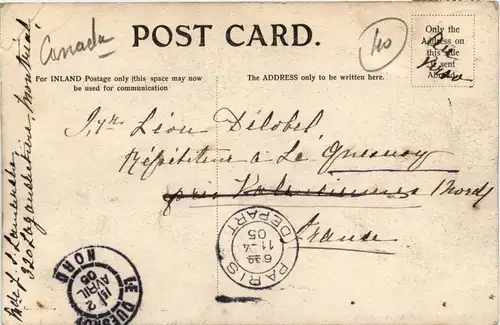 Canada
POST CARD.
40
Only the
Address on
this side
if sent
Abroad
For INLAND Postage only this space may now
be used for communication
The ADDRESS only to be written here.
Léon Délobel
Répétiteur à Le Quesnoy
près Valenciennes (Nord)
France
PARIS DEPART
6 30
11-4
05
LE QUESNOY
NORD
AVRIL
05
Montreal